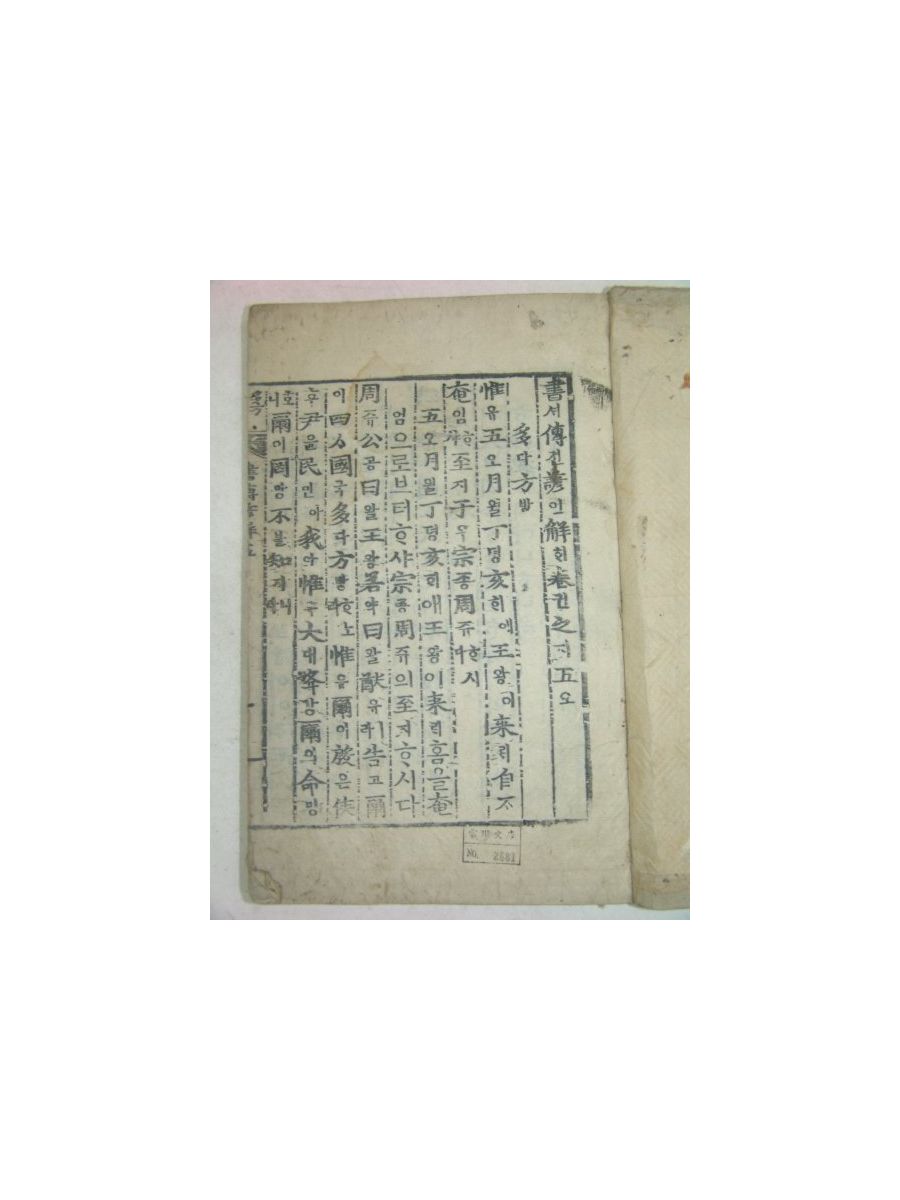 書셔傳젼諺언解ᄒᆡ卷권之지五오
多다方방
惟유五오月월丁뎡亥ᄒᆡ예王왕이來ᄅᆡ自ᄌᆞ
奄엄ᄒᆞ샤至지于우宗종周쥬ᄒᆞ시다
五오月월丁뎡亥ᄒᆡ애王왕이來ᄅᆡ홈을奄
엄으로브터ᄒᆞ샤宗종周쥬의至지ᄒᆞ시다
周쥬公공曰왈王왕若약曰왈猷유라告고爾
이四ᄉᆞ國국多다方방ᄒᆞ노라惟유爾이殷은侯
후尹윤民민아我아惟유大대降강爾의命명
ᄒᆞ니爾이罔망不블知지ᄒᆞ니라
書傳諺解五
No. 2681